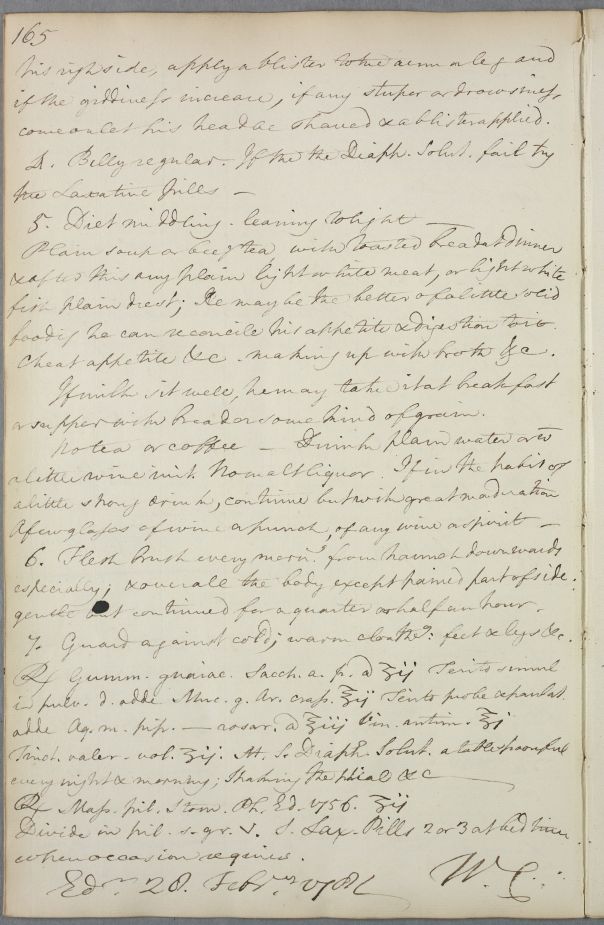 165
his right side, apply a blister to the arm or leg and
if the giddiness increase, if any stupor or drowsiness
come on let his head be shaved & a blister applied.
4. Belly regular – If the the Diaph. Solut. fail try
the Laxative pills –
5. Diet middling – leaning to light –
Plain soup or beef tea with toasted bread at dinner
& after this any plain light white meat, or light white
fish plain drest; He may be the better of a little solid
food if he can reconcile his appetite & digestion to it.
Cheat appetite &c. making up with broth &c.
If milk sit well, he may take it at breakfast
or supper with bread or some kind of grain.
No tea or coffee – Drink plain water or
a little wine with No malt liquor. If in the habit of
a little strong drink, continue but with great moderation
A few glasses of wine or punch, of any wine or spirit –
6. Flesh brush every morng. from haunch downwards
especially; & over all the body except pained part of side.
gentle but continued for a quarter or half an hour.
7. Guard against cold; warm cloathg: feet & legs &c.
℞ Gumm. guaiac. Sacch. a. p. a ʒij Tento simul
in pulv. d. adde Muc. g. Ar. crass. ℥ij Tento probe & paulat.
adde Aq. m. pip. — rosar. a ℥iij Vin. antim. ℥j
Tinct. valer. vol. ʒij. M. S. Diaph. Solut. a table spoonful
every night & morning; shaking the phial &c
℞ Mass. pil. Stom. Ph. Ed. 1756. ʒij
Divide in pil. s. gr. v. S. Lax. Pills 2 or 3 at bed time
when occasion requires.
Edr. 28. Febry. 178 W. C.